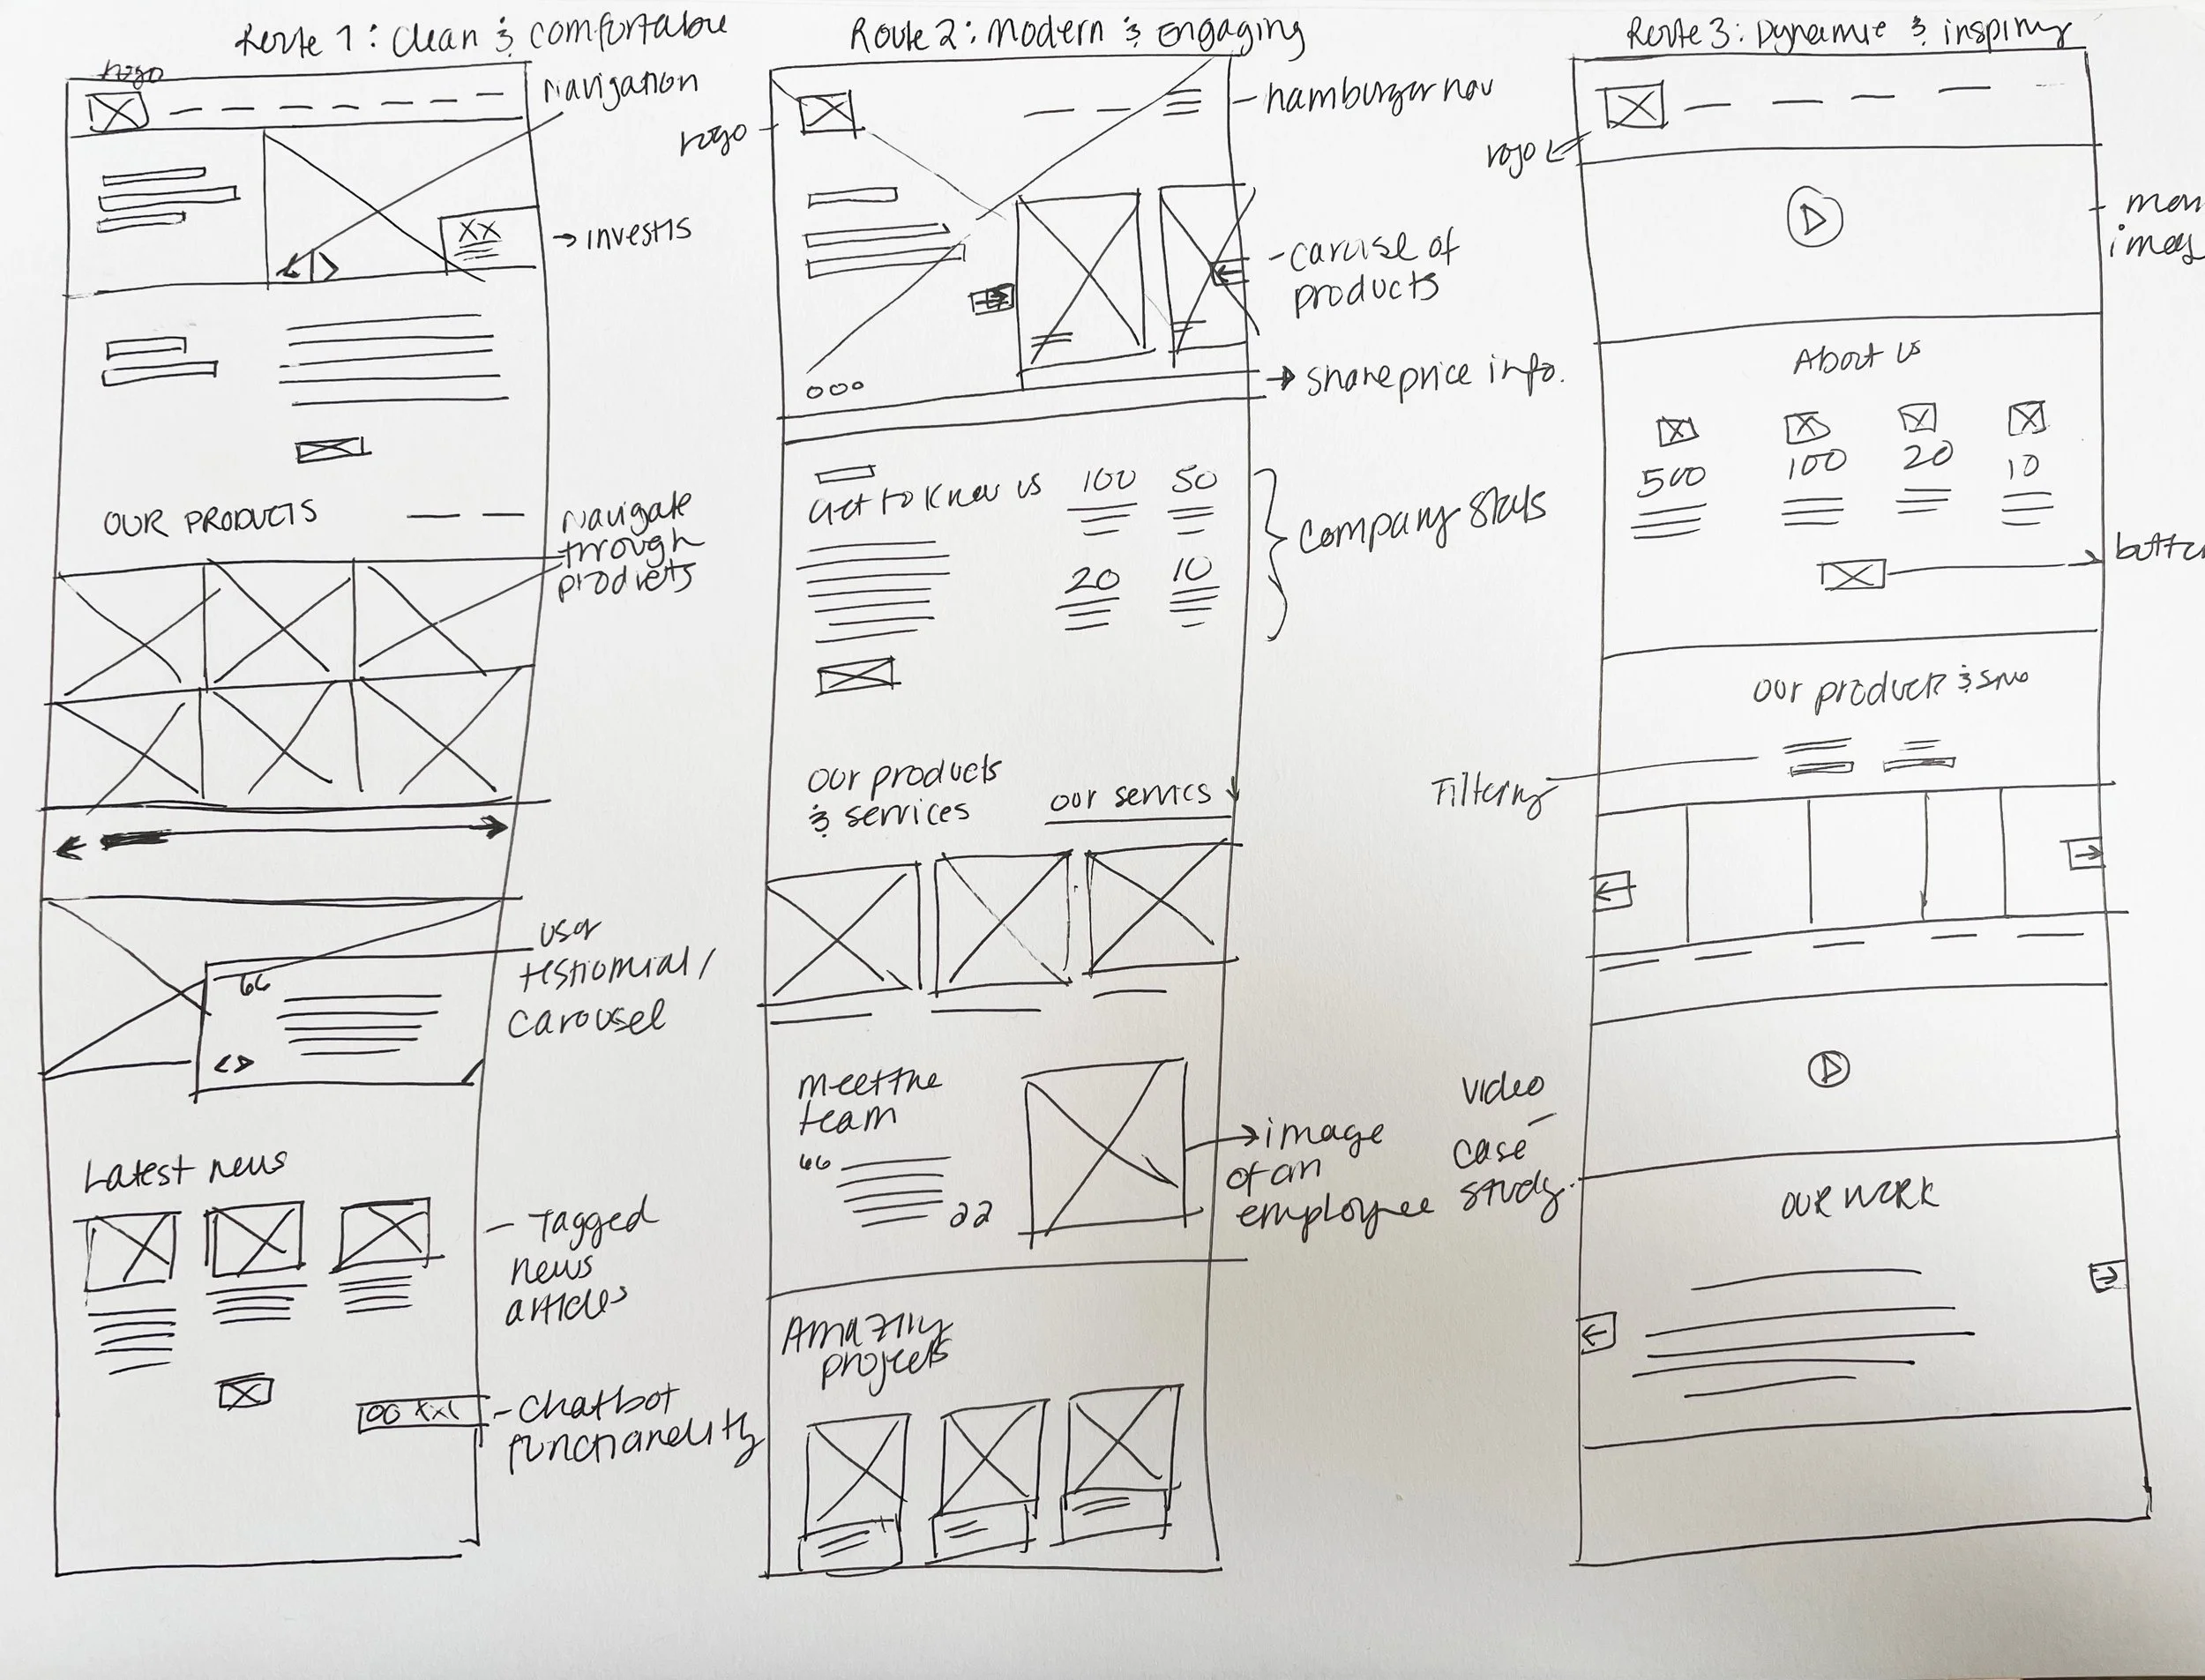 Route 1: Clean & comfortable
logo
Navigation
XX
Investis
OUR PRODUCTS
Navigate
through
products
66
<>
user
testiomial/
carousel
Latest news
Tagged
news
articles
Chatbot
functionality
Route 2: Modern & Engaging
logo
hamburger nav
carouse of
products
ooo
share price info.
Get to know us
100 50
20 10
Company Stats
Our products
& services
our services
Meet the
team
66
22
image
of an
employee
Amazing
projects
Route 3: Dynamic & inspiring
logo
About us
500 100 20 10
Our product &
Filtering
Video
case
study
OUR WORK